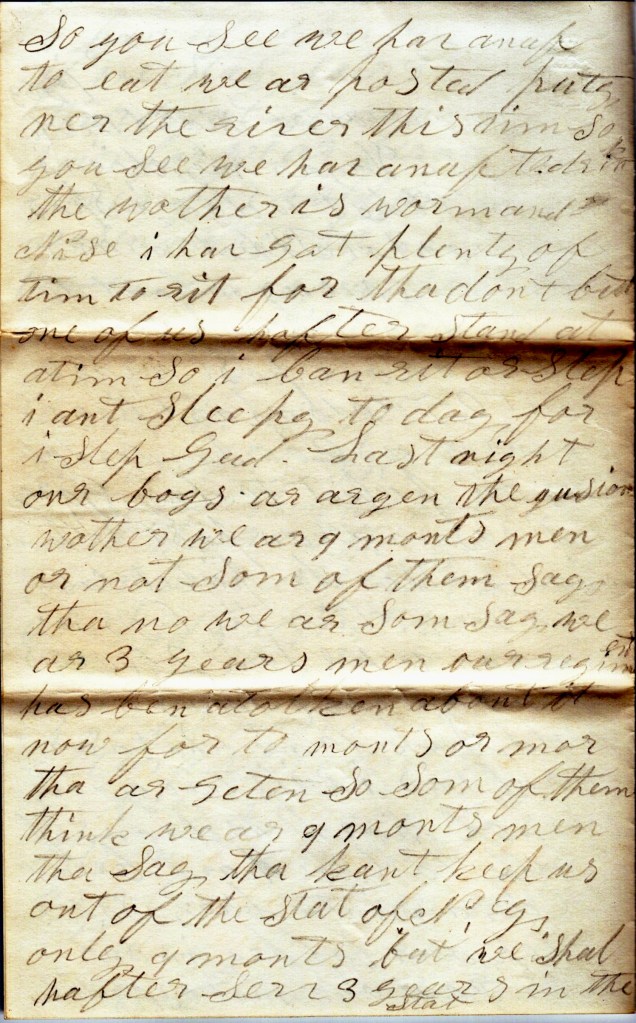 So you See we har anuf
to eat we ar posted puty
ner the river this tim So
you See we har anuf to do
the wother is worm and
Nise i har Got plenty of
tim to rit for tha dont but
one of us hafter stand at
a tim So i can rit or Slep
i ant Sleepy to day for
i Slep Gud Last night
our boys ar argen the qusion
wother we ar 9 monts men
or not Som of them Say
tha no we ar Som Say we
ar 3 years men our regiment
has ben a tolken about it
now for to monts or mor
tha ar Geten So Som of them
think we ar 9 monts men
tha Say tha kant keep us
out of the Stat of N. Y.
only 9 monts but we Shal
hafter Serv 3 years in the
Stat